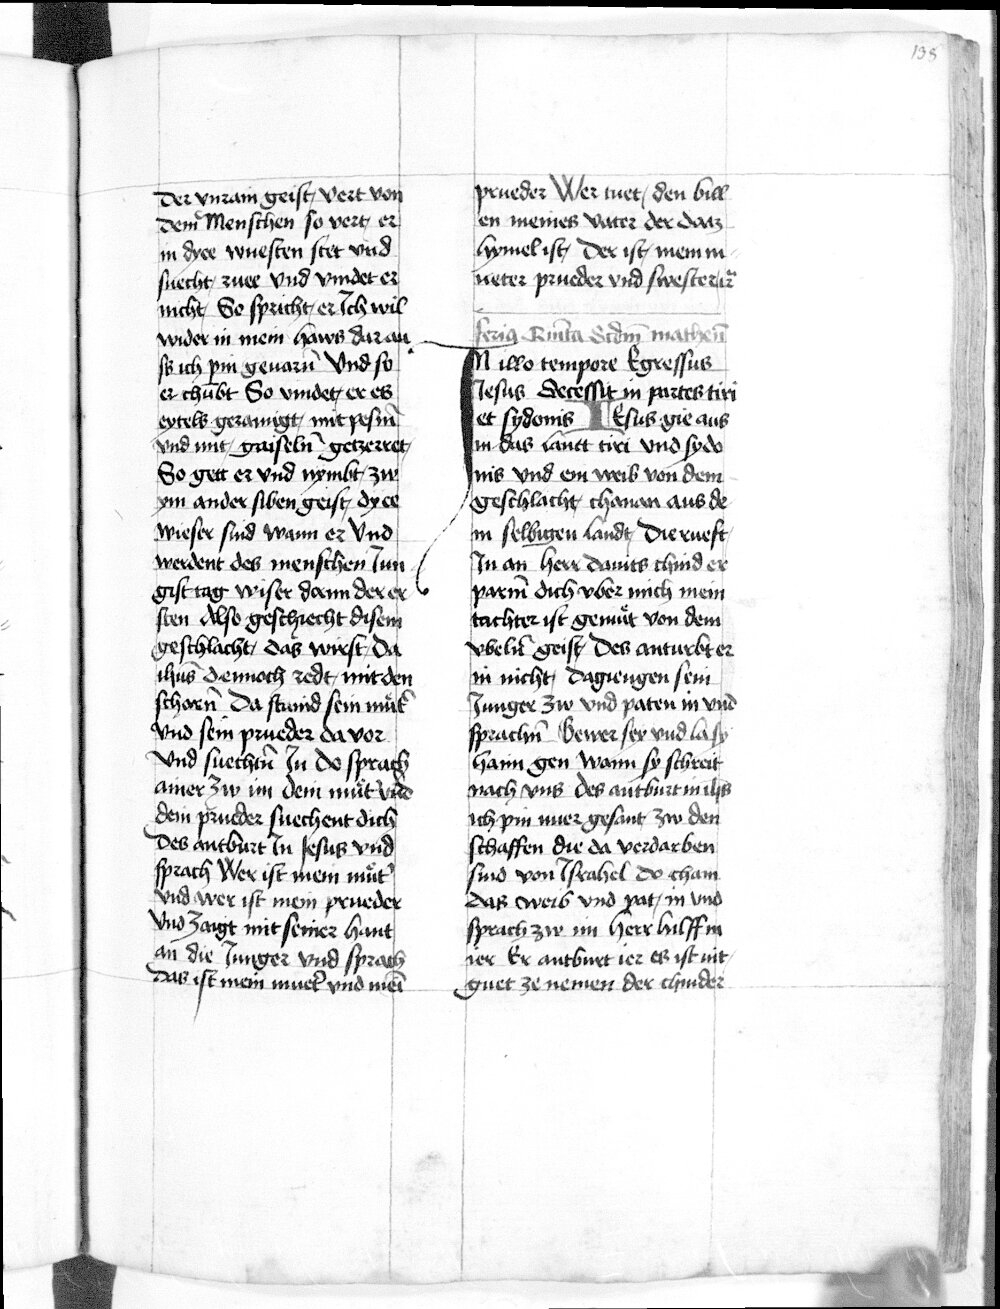 135
Der vnrain geist vert von
dem Menschen so vert er
in dyee wuesten stet vnd
suecht ruee vnd vindet er
nicht So spricht er Ich wil
wider in mein haws dar au
ss ich pin gevarn̄ Vnd so
er chūbt So vindet er es
eytels geraunigt mit pesm̄
vnd mit gaiseln̄ getzerret
So gett er vnd nymbt zw
ym ander siben geist dyee
wieser sind wann er Vnd
werdent des menschen Jun
gist tag wiser dann der er
sten Also geschiecht disem
geschlacht das wirst Da
ihūs dennoch redt mit den
scharn̄ Da stuind sein muͦt
vnd sein prueder da vor
vnd suechtn̄ In do sprach
ainer zw im dein muͦt vnd
dein prueder suechent dich
Des antburt In Jesus vnd
sprach Wer ist mein muͦt
vnd wer ist mein prueder
vnd zaigt mit seiner hant
an die Junger vnd sprach
das ist mein muet vnd mein̄
prueder Wer tuet den bill
en meines vater der daz
hymel ist Der ist mein m
ueter prueder vnd swester ir̄
feria Quīta Scdm̄ matheū
IN illo tempore Egressus
Jesus secessit in partes tiri
et sydonis IEsus gie aus
in das lantt tiri vnd sydo
nis vnd ein weib von dem
geschlacht chanan aus de
m selbigen landt Die rueft
In an herr dauits chind er
parm̄ dich vber mich mein
tachter ist gemuͤt von dem
vbeln̄ geist Des anturbt er
in nicht Da giengen sein
Junger zw vnd paten in vnd
sprachn̄ Gewer sey vnd la sy
hann gen wann sy schreit
nach vns des antburt in ihs
ich pin nuer gesant zw den
schaffen die da verdarben
sind von Israhel do cham
das weib vnd pat in vnd
sprach zw im herr hilff m
ier Er antburt ier es ist nit
guet ze nemen der chinder